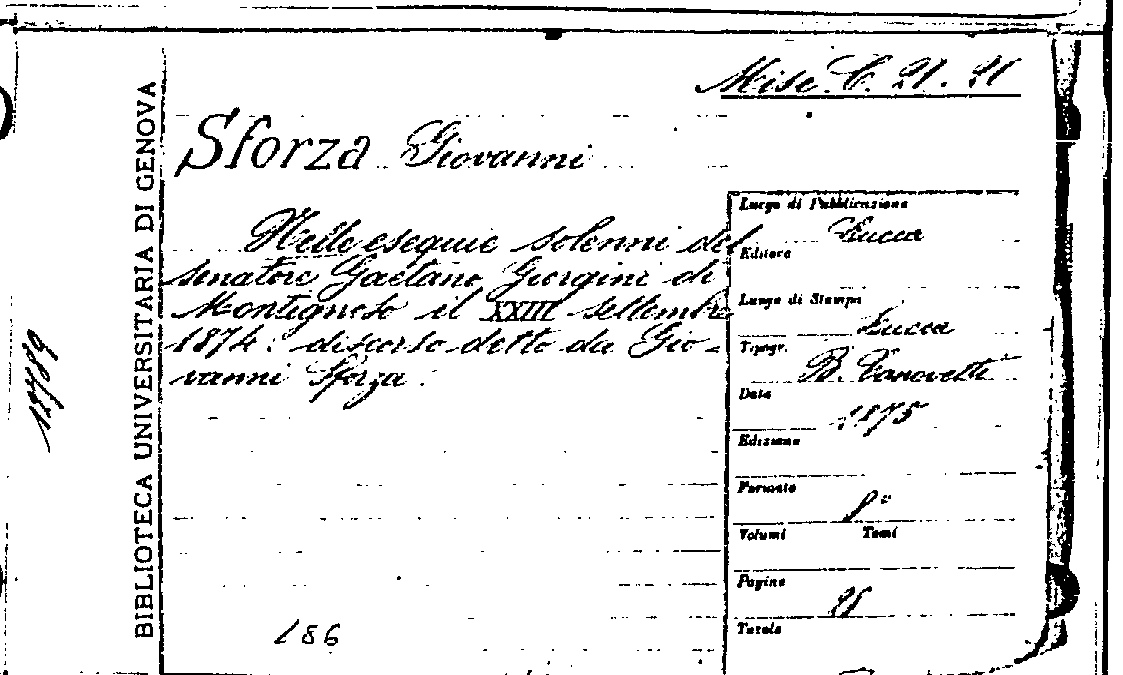 Misc. C. 21. 21
Sforza Giovanni
Nelle esequie solenni del
senatore Gaetano Giorgini di
Montignoso il XXIII settembre
1874: discorso detto da Gio-
vanni Sforza.
186
BIBLIOTECA UNIVERSITARIA DI GENOVA
Luogo di Pubblicazione
Lucca
Editore
Luogo di Stampa
Lucca
Tipogr.
B. Canovetti
Data
1875
Edizione
Formato
8°
Volumi Tomi
Pagine
Tavole